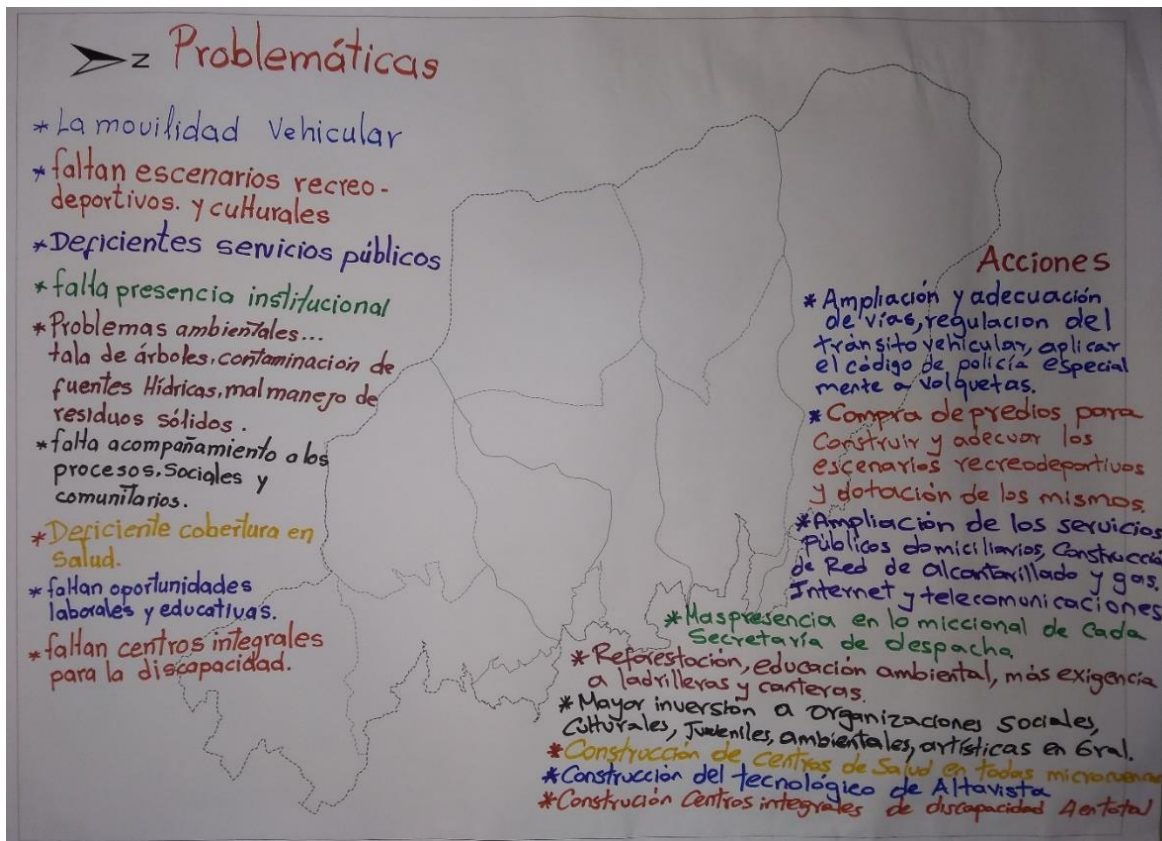 Z Problemáticas
* La movilidad Vehicular
* faltan escenarios recreo-
deportivos. y culturales
* Deficientes servicios públicos
* falta presencia institucional
* Problemas ambientales...
tala de árboles, contaminacion de
fuentes Hídricas, mal manejo de
residuos sólidos.
* falta acompañamiento a los
procesos, Sociales y
comunitarios.
* Deficiente cobertura en
Salud.
* faltan oportunidades
laborales y educativas.
* faltan centros integrales
para la discapacidad.
Acciones
* Ampliación y adecuación
de vías, regulacion del
tránsito vehicular, aplicar
el código de policía especial
mente a volquetas.
* Compra de predios para
Construir y adecuar los
escenarios recreodeportivos
y dotación de los mismos.
* Ampliación de los servicios
Públicos domiciliarios, Construcció
de Red de alcantarillado y gas.
Internet y telecomunicaciones
* Mas presencia en lo miccional de cada
Secretaría de despacho
* Reforestación, educación ambiental, más exigencia
a ladrilleras y canteras.
* Mayor inversión a organizaciones sociales,
Culturales, Juveniles, ambientales, artísticas en Gral.
* Construcción de centros de Salud en todas
* Construcción del tecnológico de Altavista
* Construción Centros integrales de discapacidad 4 en total